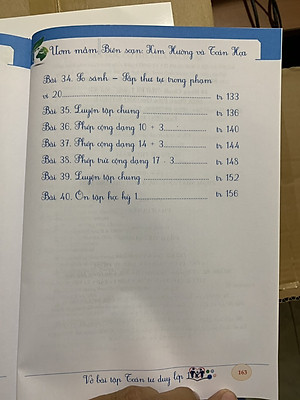 Ươm mầm Biên soạn: Kim Hương và Toán Họa
Bài 34. So sánh – Sắp thứ tự trong phạm
vi 20 tr 133
Bài 35. Luyện tập chung tr 136
Bài 36. Phép cộng dạng 10 + 3 tr 140
Bài 37. Phép cộng dạng 14 + 3 tr 144
Bài 38. Phép trừ cộng dạng 17 - 3 tr 148
Bài 39. Luyện tập chung tr 152
Bài 40. Ôn tập học kỳ 1 tr 156
Vở bài tập Toán tư duy lớp
163